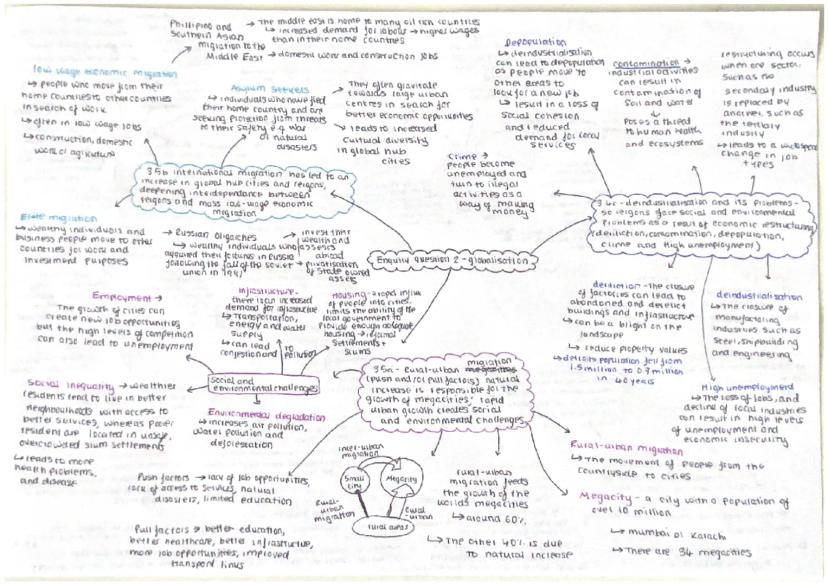 Phillipino and
Southern Asian
migration to the
Middle East
→ The middle east is home to many oil rich countries
↳ increased demand for labour → higher wages
than in their home countries
→ domestic work and construction jobs
low wage economic migration
↳ people who move from their
home countries to other countries
in search of work
↳ often in low wage jobs
↳ construction, domestic
work or agriculture
Asylum seekers
↳ individuals who have fled
their home country and are
seeking protection from threats
to their safety e.g war
or natural
disasters
→ They often gravitate
towards large urban
centres in search for
better economic opportunities
↳ leads to increased
cultural diversity
in global hub
cities
3.5b international migration has led to an
increase in global hub cities and reigons,
deepening interdependence between
reigons and mass low-wage economic
migration
Elite migration
↳ wealthy individuals and
business people move to other
countries for work and
investment purposes
→ Russian Oligarchs
↳ wealthy individuals who
acquired their fortunes in Russia
following the fall of the soviet
union in 1991
→ invest their
wealth and
assets
abroad
→ privatisation
of state owned
assets
Enquiry question 2 - globalisation
Depopulation
↳ deindustrialisation
can lead to depopulation
as people move to
other areas to
look for a new job
↳ result in a loss of
social cohesion
and reduced
demand for local
services
contamination →
industrial activities
can result in
contamination of
Soil and water
↳ Poses a threat
to human health
and ecosystems
restructuring occurs
when one sector,
such as the
secondary industry
is replaced by
another, such as
the tertiary
industry
↳ leads to a widespread
change in job
types
Crime →
people become
unemployed and
turn to illegal
activities as a
way of making
money
deindustrialisation and its problems -
some regions face social and environmental
problems as a result of economic restructuring
(dereliction, contamination, depopulation,
crime and high unemployment)
dereliction - The closure
of factories can lead to
abandoned and derelict
buildings and infrastructure
↳ can be a blight on the
landscape
↳ reduce property values
↳ detroits population fell from
1.5 million to 0.7 million
in 40 years
deindustrialisation
↳ The closure of
manufacturing
industries such as
Steel, shipbuilding
and engineering
High unemployment
↳ The loss of jobs, and
decline of local industries
can result in high levels
of unemployment and
economic insecurity
Employment →
The growth of cities can
create new job opportunities
but the high levels of competition
can also lead to unemployment
Infrastructure -
there is an increased
demand for infrastructure
↳ Transportation,
energy and water
supply
↳ can lead to
congestion and pollution
Housing - a rapid influx
of people into cities
limits the ability of the
local government to
provide enough adequate
housing → informal
Settlements +
Slums
Social and
environmental challenges
Social inequality → wealthier
residents tend to live in better
neighbourhoods with access to
better services, whereas poorer
resident are located in unsafe,
overcrowded slum settlements
↳ leads to more
health problems,
and disease
Environmental degradation
↳ increases air pollution,
water pollution and
deforestation
3.5a - Rural-urban migration
(push and/or pull factors) natural
increase is responsible for the
growth of megacities; rapid
urban growth creates social
and environmental challenges
Push factors → lack of job opportunities,
lack of access to services, natural
disasters, limited education
Pull factors → better education,
better healthcare, better infrastructure,
more job opportunities, improved
transport links
inter-urban
migration
Small
city
Megacity
Rural-
urban
migration
Rural
-urban
rural areas
rural-urban
migration feeds
the growth of the
worlds megacities
↳ around 60%
↳ The other 40% is due
to natural increase
Rural-urban migration
↳ The movement of people from the
countryside to cities
Megacity - a city with a population of
over 10 million
↳ mumbai or Karachi
↳ There are 34 megacities